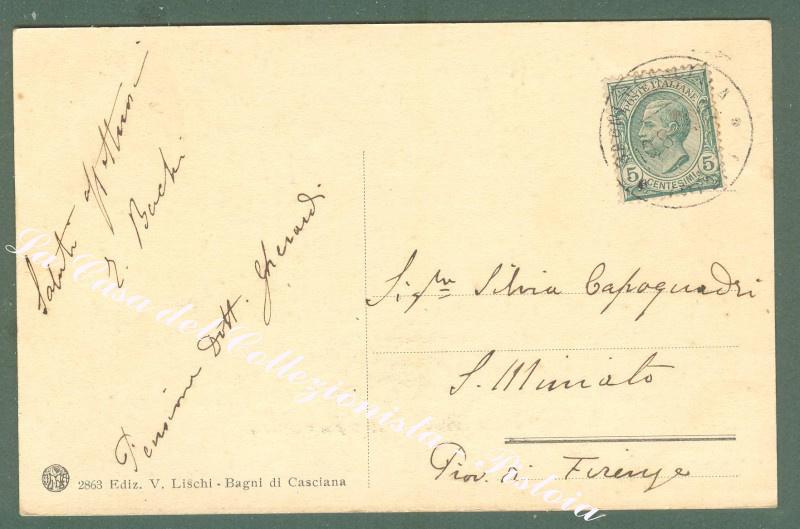 Saluti affettuosi
Bachi
Pensione Dott. Gherardi
2863 Ediz. V. Lischi - Bagni di Casciana
POSTE ITALIANE
5 CENTESIMI 5
Sig.ra Silvia Capoquadri
S. Miniato
Prov. di Firenze
La Casa del Collezionista - Pistoia